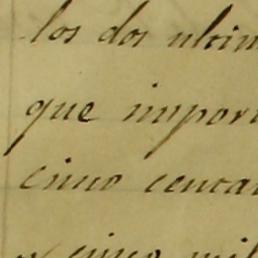 los dos ultim
que impor
cinco centa
y cinco mil